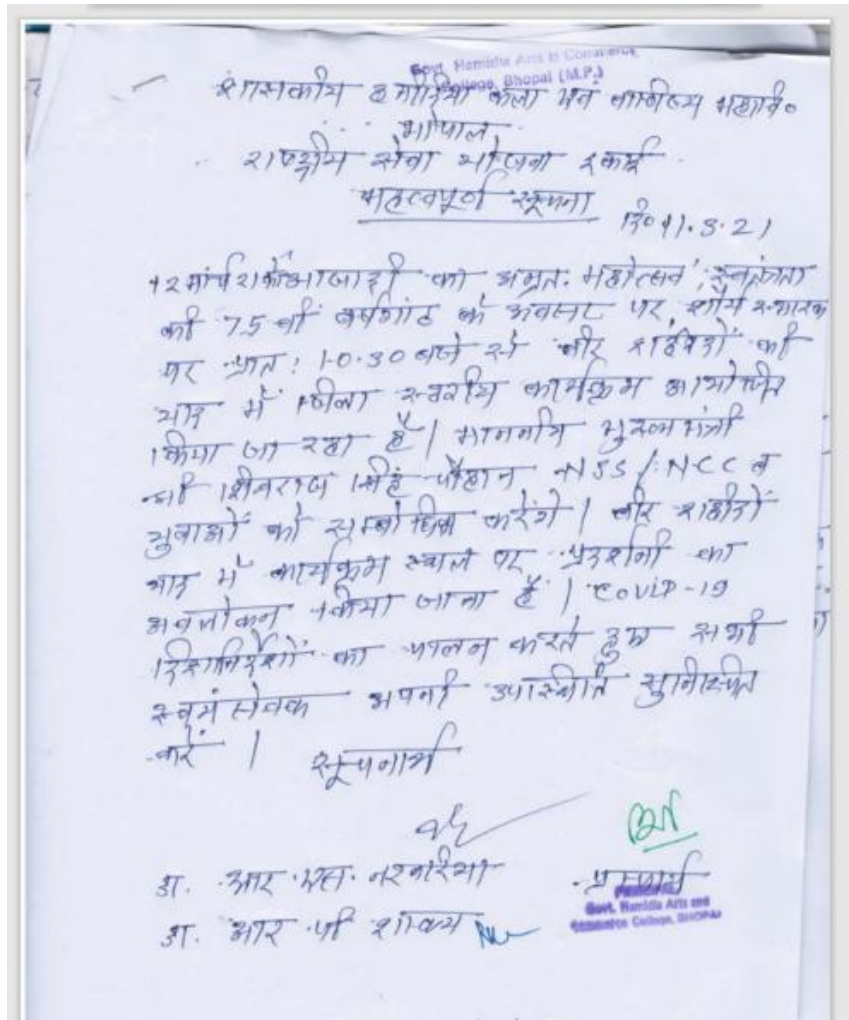 Govt. Hamidia Arts & Commerce
College, Bhopal (M.P.)
शासकीय हमीदिया कला एवं वाणिज्य महावि०
भोपाल
राष्ट्रीय सेवा योजना इकाई
महत्वपूर्ण सूचना
दि० 11.3.21
12 मार्च 21 को आजादी का अमृत महोत्सव स्वतंत्रता
की 75 वीं वर्षगांठ के अवसर पर, शौर्य स्मारक
पर प्रातः 10.30 बजे से वीर शहीदों की
याद में जिला स्तरीय कार्यक्रम आयोजित
किया जा रहा है। माननीय मुख्यमंत्री
श्री शिवराज सिंह चौहान NSS / NCC व
युवाओं को सम्बोधित करेंगे। वीर शहीदों
याद में कार्यक्रम स्थल पर प्रदर्शनी का
अवलोकन किया जाना है। COVID-19
दिशानिर्देशों का पालन करते हुए सभी
स्वयं सेवक अपनी उपस्थिति सुनिश्चित
करें।
सूचनार्थ
डा. आर. एस. नरवरिया
प्राचार्य
डा. आर पी शाक्य
PRINCIPAL
Govt. Hamidia Arts and
Commerce College, BHOPAL